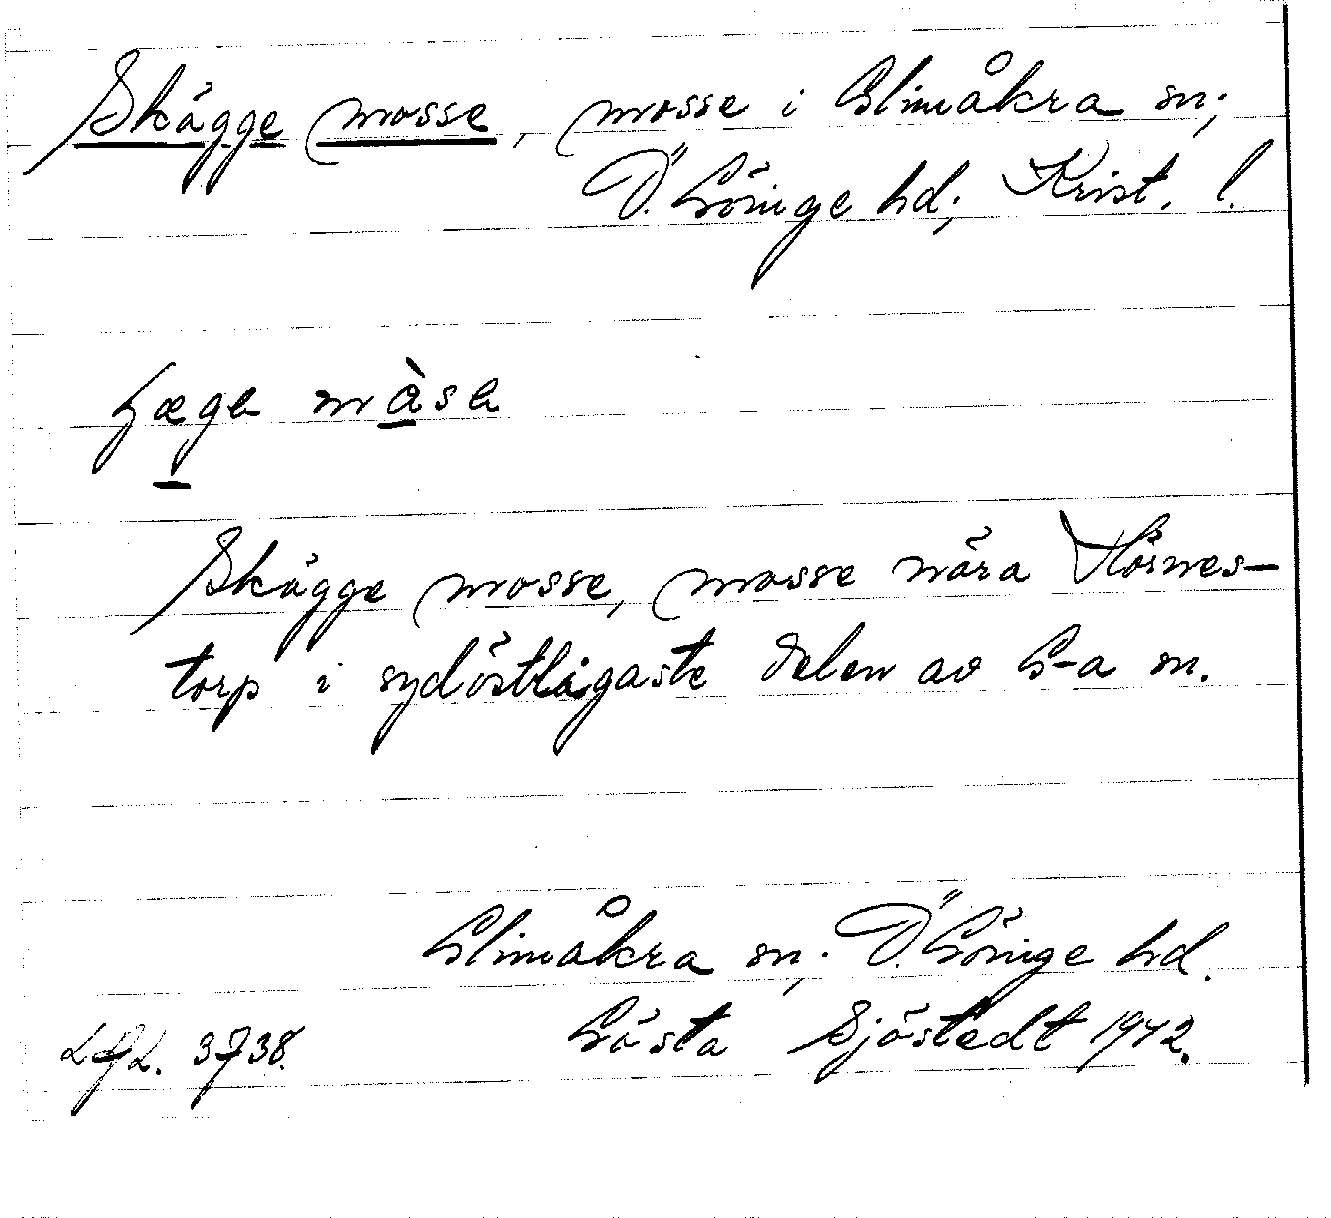 Skägge mosse, mosse i Glimåkra sn;
Ö. Göinge hd; Krist. l.
mòsa
Skägge mosse, mosse nära Hörnes-
torp i sydöstligaste delen av G-a sn.
Glimåkra sn; Ö. Göinge hd.
Gösta Sjöstedt 1942.
3738.